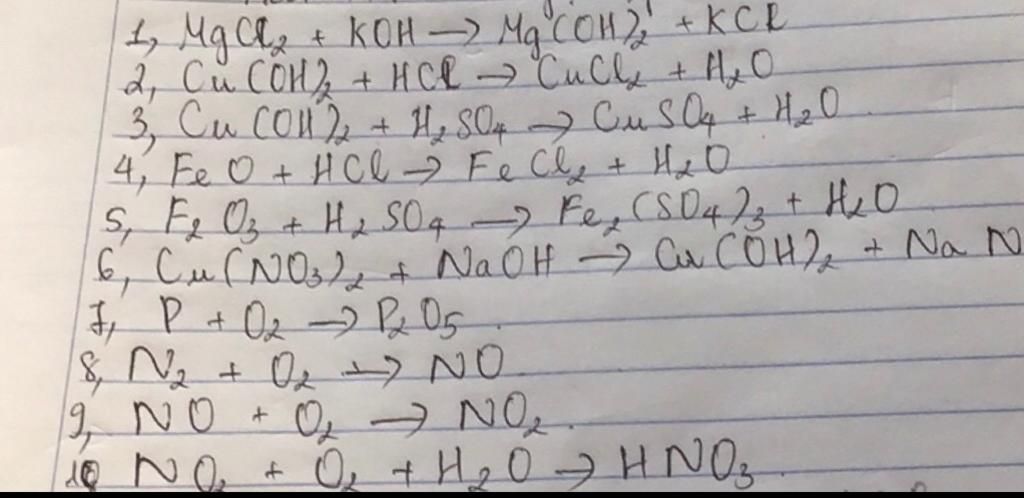 1, MgCl₂ + KOH → Mg(OH)₂ + KCl
2, Cu(OH)₂ + HCl → CuCl₂ + H₂O
3, Cu(OH)₂ + H₂SO₄ → CuSO₄ + H₂O
4, FeO + HCl → FeCl₂ + H₂O
5, F₂O₃ + H₂SO₄ → Fe₂(SO₄)₃ + H₂O
6, Cu(NO₃)₂ + NaOH → Cu(OH)₂ + NaN
7, P + O₂ → P₂O₅.
8, N₂ + O₂ → NO.
9, NO + O₂ → NO₂.
10 NO₂ + O₂ + H₂O → HNO₃.